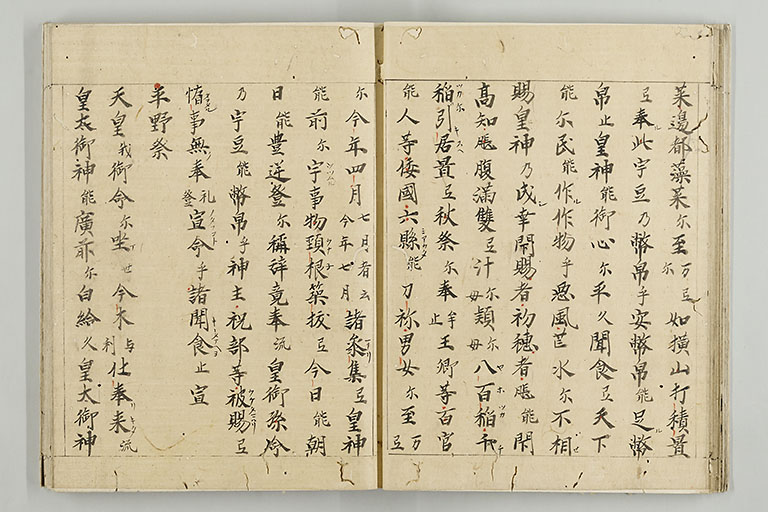 菜邊都藻菜尓至万弖如横山打積置
弖奉此宇豆乃幣帛乎安幣帛能足幣
帛止皇神能御心尓平久聞食弖天下
能尓民能作作物乎悪風荒水尓不相
賜皇神乃成幸閇賜者初穂者𤭖能閇
高知𤭖腹満雙弖汁尓母頴尓母八百稲千
稲引居置弖秋祭尓奉牟止王卿等百官
能人等倭國六縣能刀祢男女尓至万弖
尓今年四月七月者云今年七月諸参集弖皇神
能前尓宇事物頸根築拔弖今日能朝
日能豊逆登尓稱辞竟奉流皇御孫命
乃宇豆能幣帛乎神主祝部等被賜弖
惰事無奉礼登宣命乎諸聞食止宣
平野祭
天皇我御命尓坐世今木与利仕奉来流
皇太御神能廣前尓白給久皇太御神